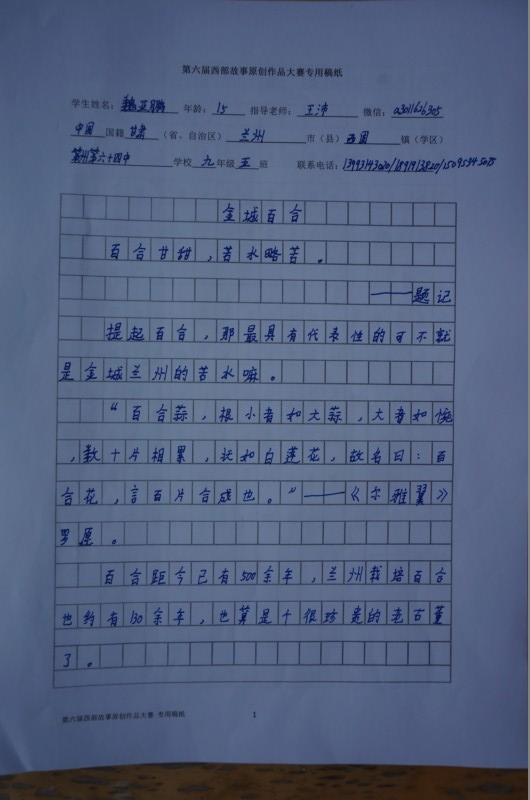 第六届西部故事原创作品大赛专用稿纸
学生姓名： 年龄：15 指导老师：王沛 微信：a3011626305
中国 国籍 甘肃 （省、自治区） 兰州 市（县） 西固 镇（学区）
兰州第六十四中 学校 九 年级 五 班 联系电话：
金城百合
百合甘甜，苦水略苦。
——题记
提起百合，那最具有代表性的可不就
是金城兰州的苦水嘛。
“百合蒜，根小者如大蒜，大者如碗
，数十片相累，状如白莲花，故名曰：百
合花，言百片合成也。”——《尔雅翼》
罗愿。
百合距今已有500余年，兰州栽培百合
也约有130余年，也算是个很珍贵的老古董
了。
第六届西部故事原创作品大赛 专用稿纸
1